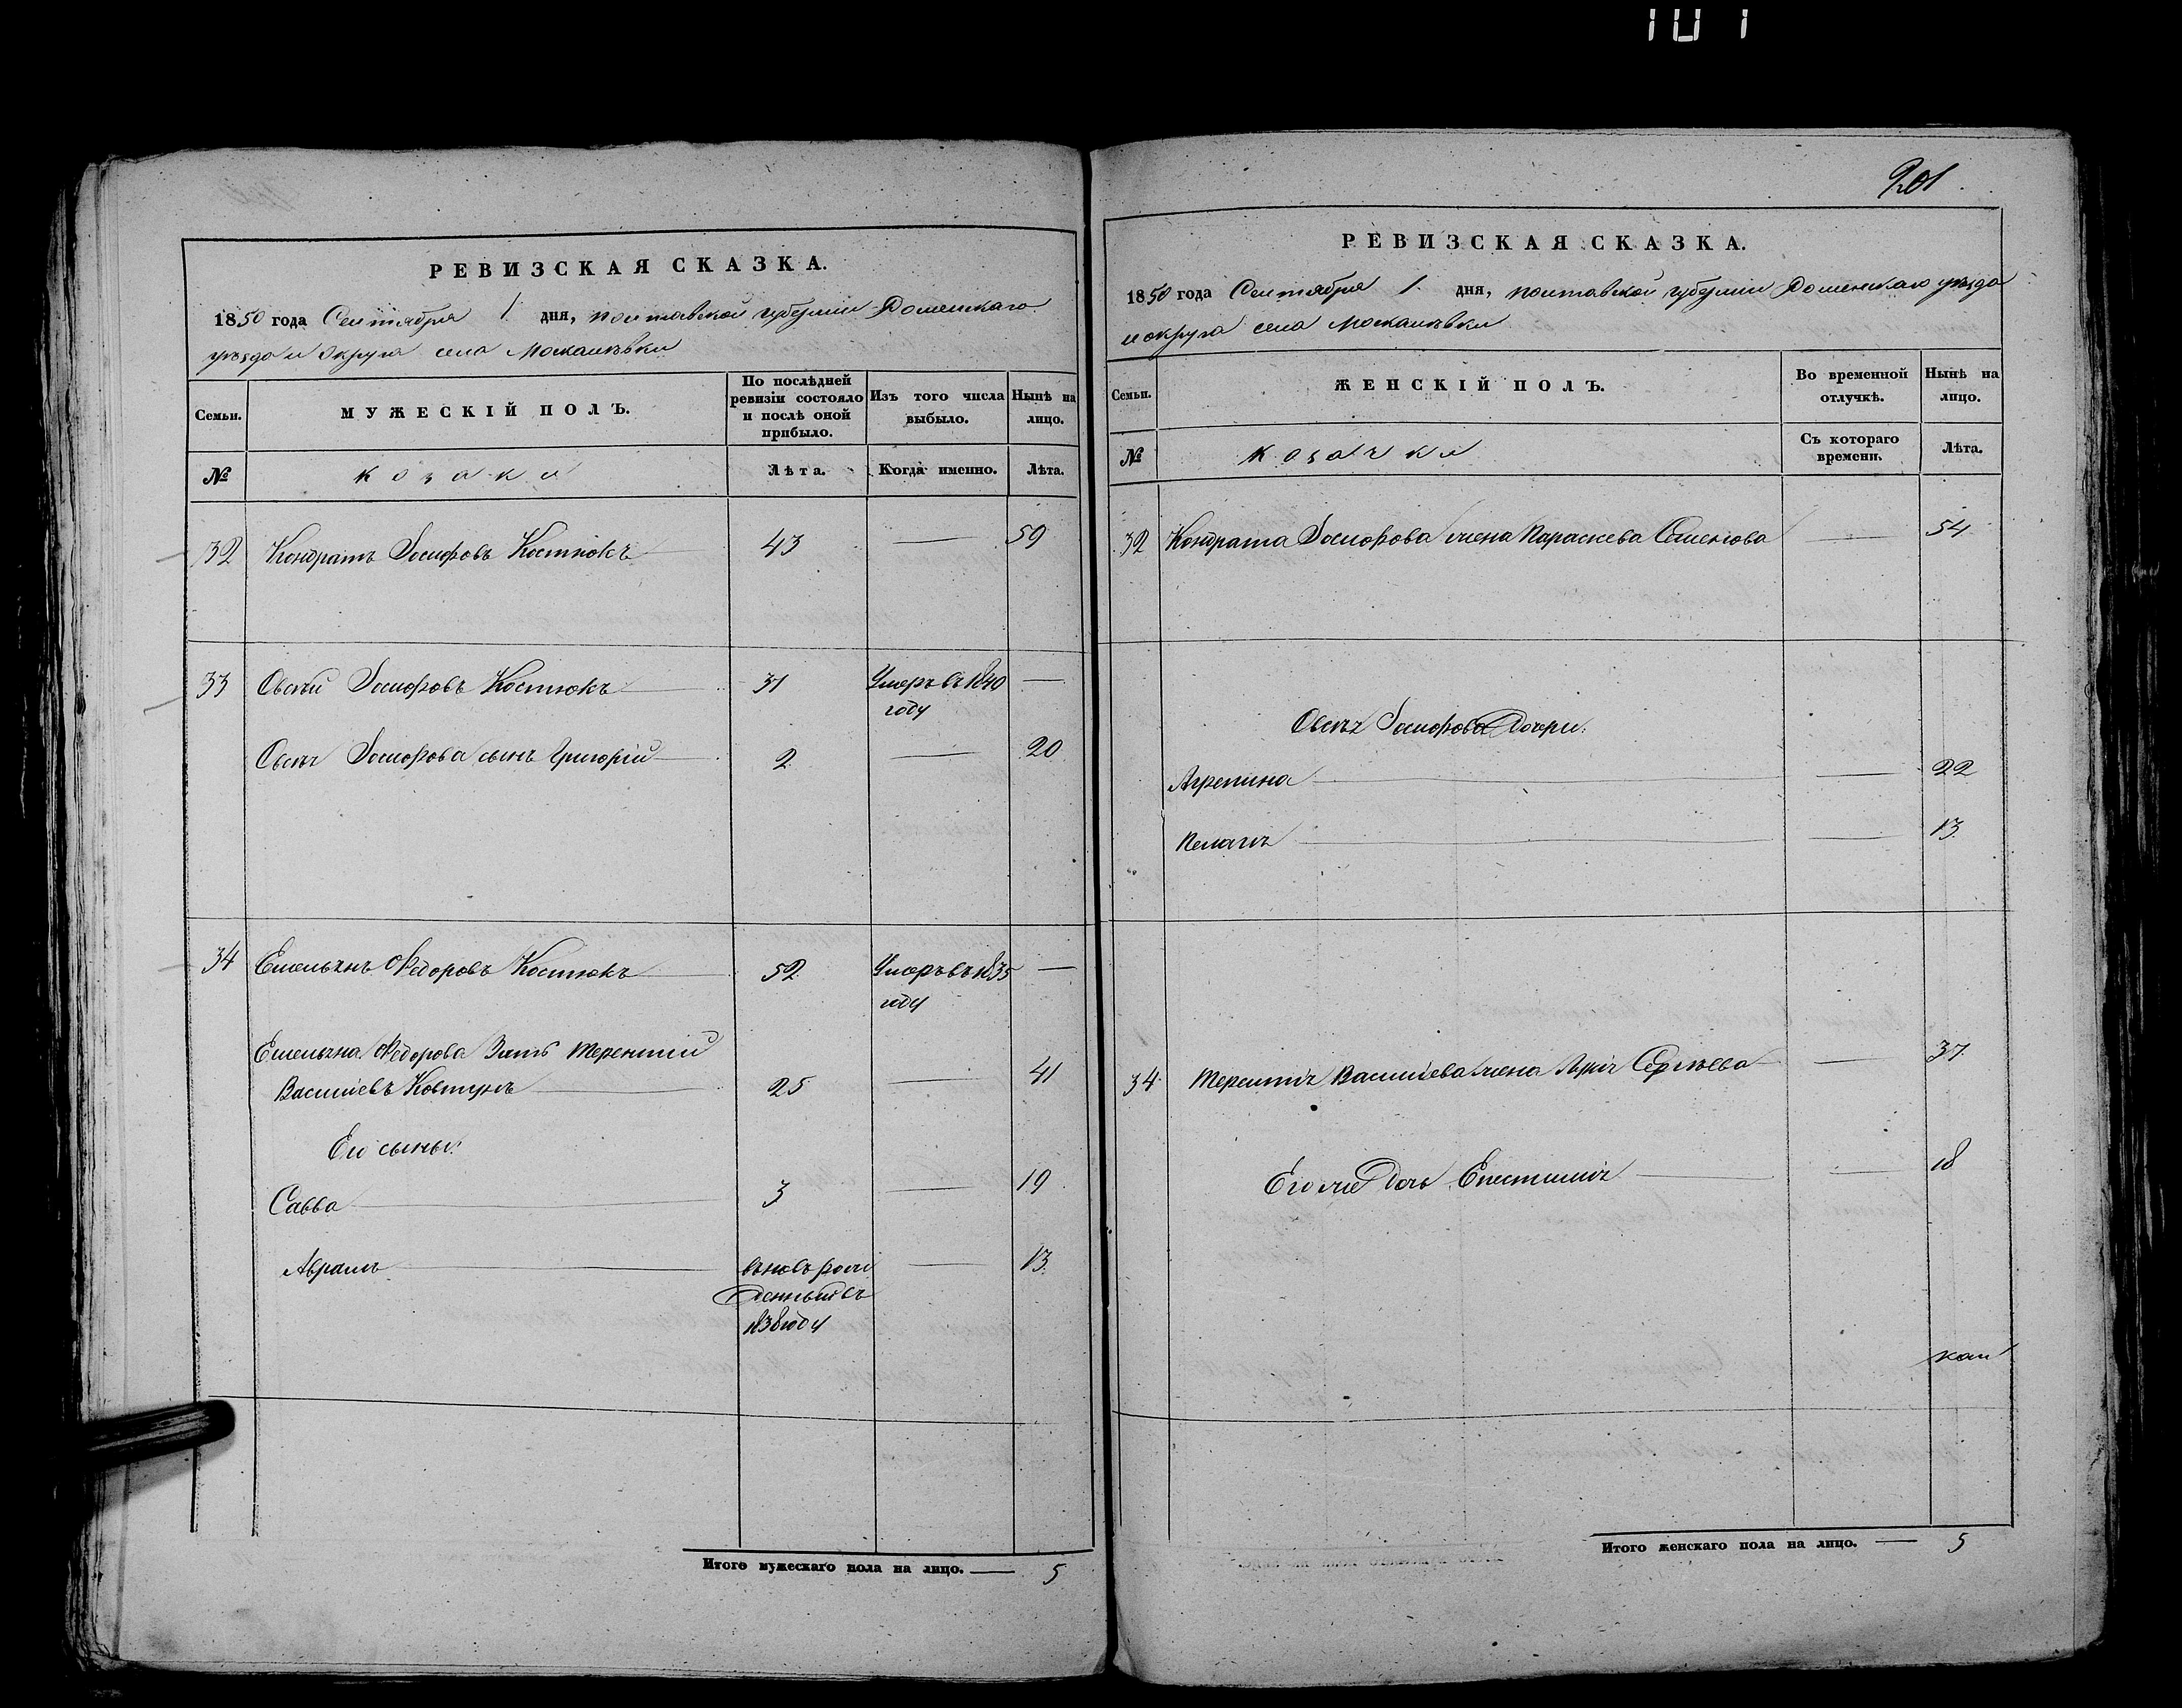 101
РЕВИЗСКАЯ СКАЗКА.
1850 года Сентября 1 дня, Полтавской губернии Роменскаго
уѣзда и округа села Москалѣвки
Семьи.
МУЖЕСКІЙ ПОЛЪ.
По послѣдней ревизіи состояло и послѣ оной прибыло.
Изъ того числа выбыло.
Нынѣ на лицо.
№
козаки
Лѣта.
Когда именно.
Лѣта.
32 Кондратъ Іосифовъ Костюкъ 43 — 59
33 Овсѣй Іосифовъ Костюкъ 31 Умеръ въ 1840 —
году
Овсѣя Іосифова сынъ Григорій 2 — 20
34 Емельянъ Ѳедоровъ Костюкъ 52 Умеръ въ 1835 —
году
Емельяна Ѳедорова Зять Терентій
Васильевъ Ковтунъ 25 — 41
Его сыны:
Савва 3 — 19
Аврамъ вновь рож — 13
денный въ
1838 году
Итого мужескаго пола на лицо. — 5
201
РЕВИЗСКАЯ СКАЗКА.
1850 года Сентября 1 дня, Полтавской губернии Роменскаго уѣзда
и округа села Москалѣвки
Семьи.
ЖЕНСКІЙ ПОЛЪ.
Во временной отлучкѣ.
Нынѣ на лицо.
№
козачки
Съ котораго времени.
Лѣта.
32 Кондрата Іосифова жена Параскева Семенова — 54
Овсѣя Іосифова Дочери:
Агрепина — 22
Пелагія — 13
34 Терентія Васильева жена Ирія Сергѣева — 37
Его же Дочь Епестимія — 18
Итого женскаго пола на лицо. — 5